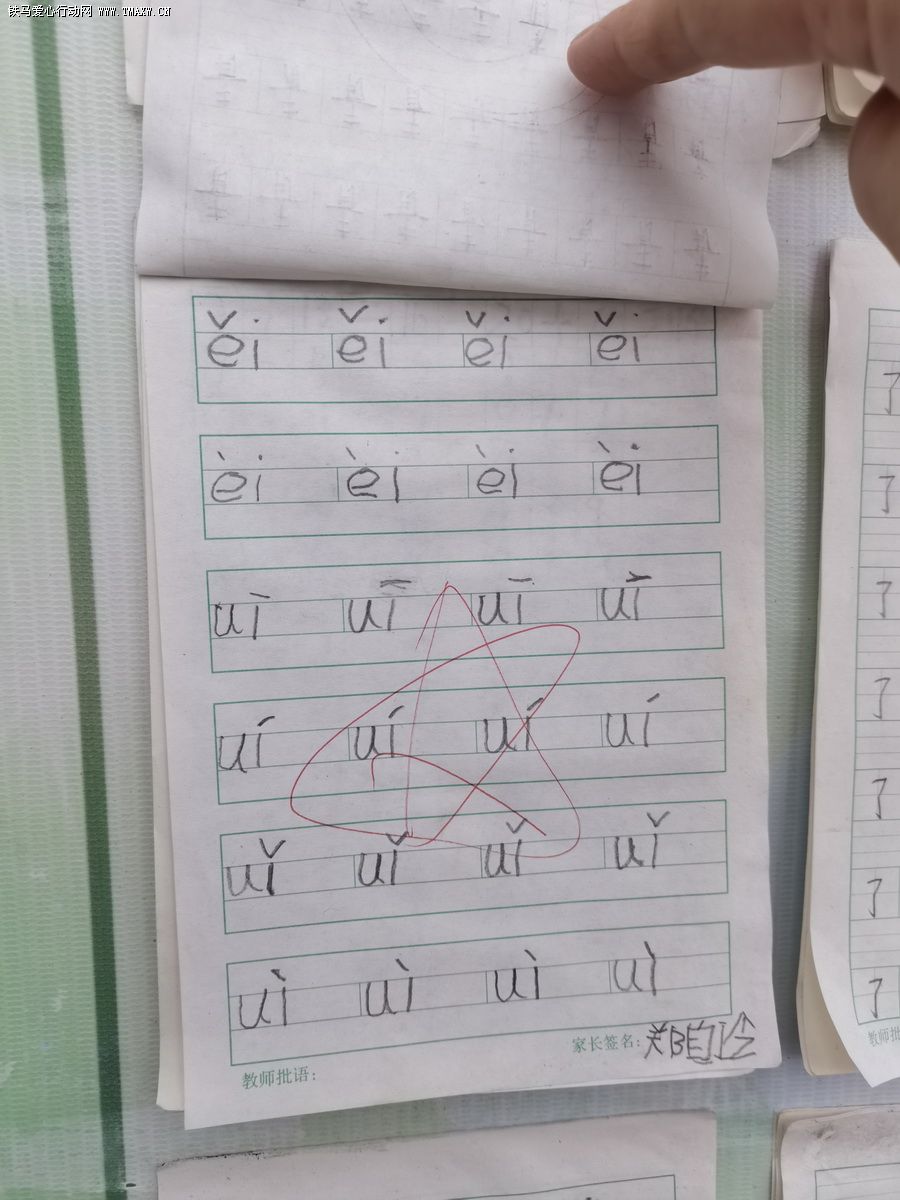 铁马爱心行动网 www.TMAXW.CN
ěi ěi ěi ěi
èi èi èi èi
uī uī uī uī
uí uí uí uí
uǐ uǐ uǐ uǐ
uì uì uì uì
家长签名：
教师批语：
了
了
了
了
了
了
了